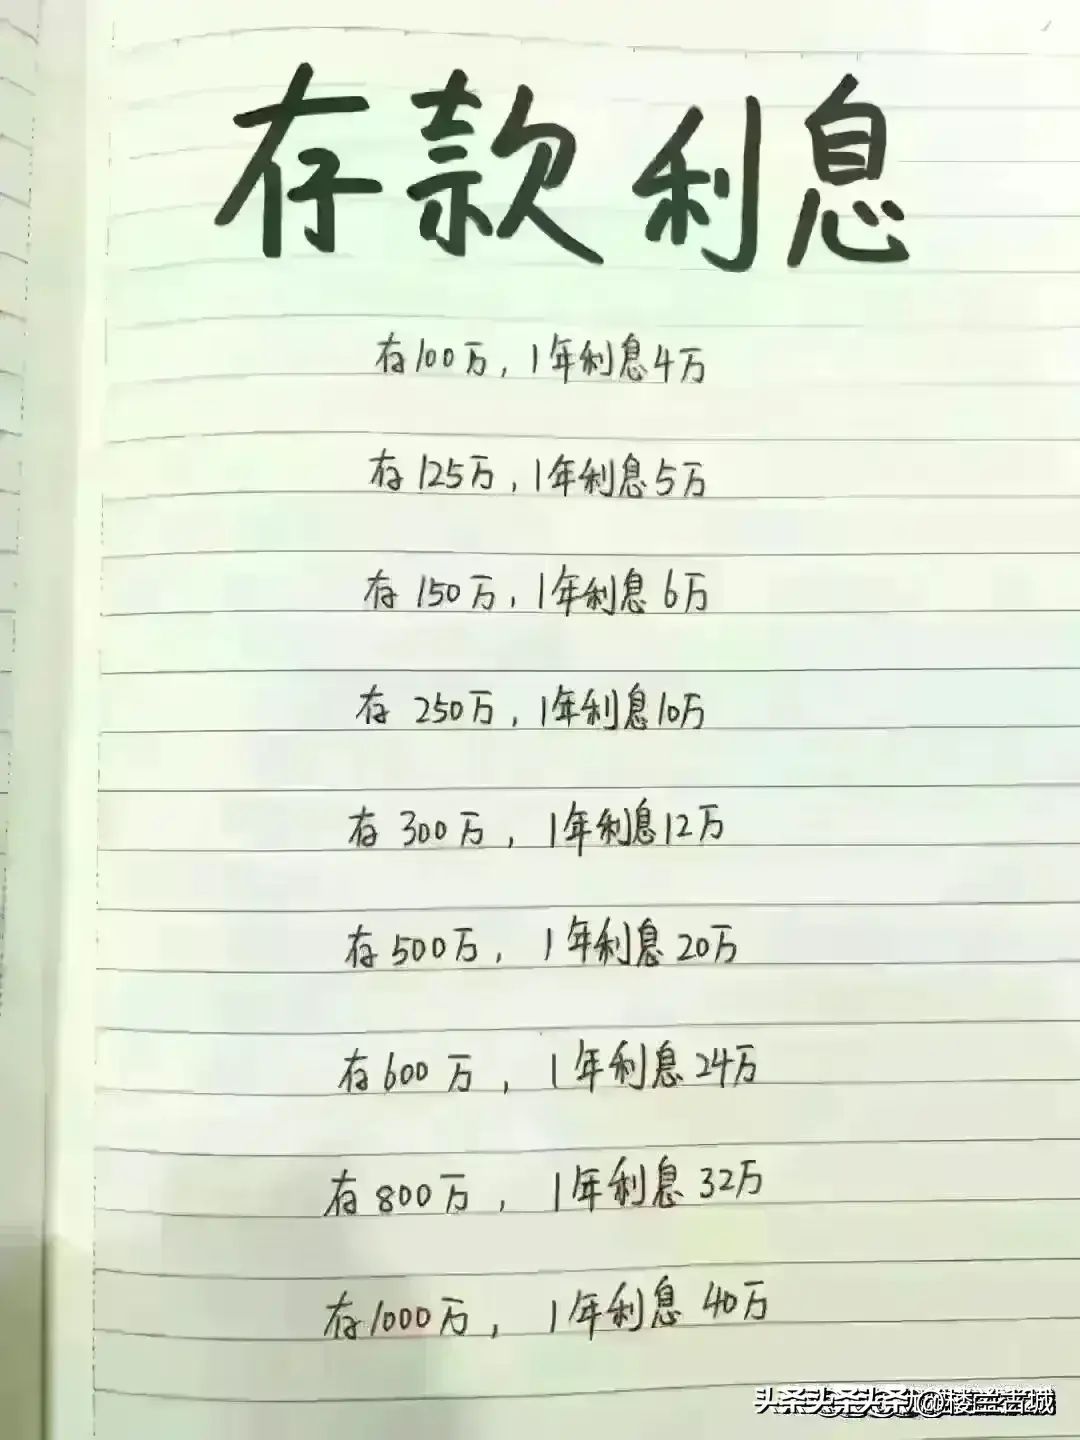 存款利息
存100万，1年利息4万
存125万，1年利息5万
存150万，1年利息6万
存250万，1年利息10万
存300万，1年利息12万
存500万，1年利息20万
存600万，1年利息24万
存800万，1年利息32万
存1000万，1年利息40万
头条